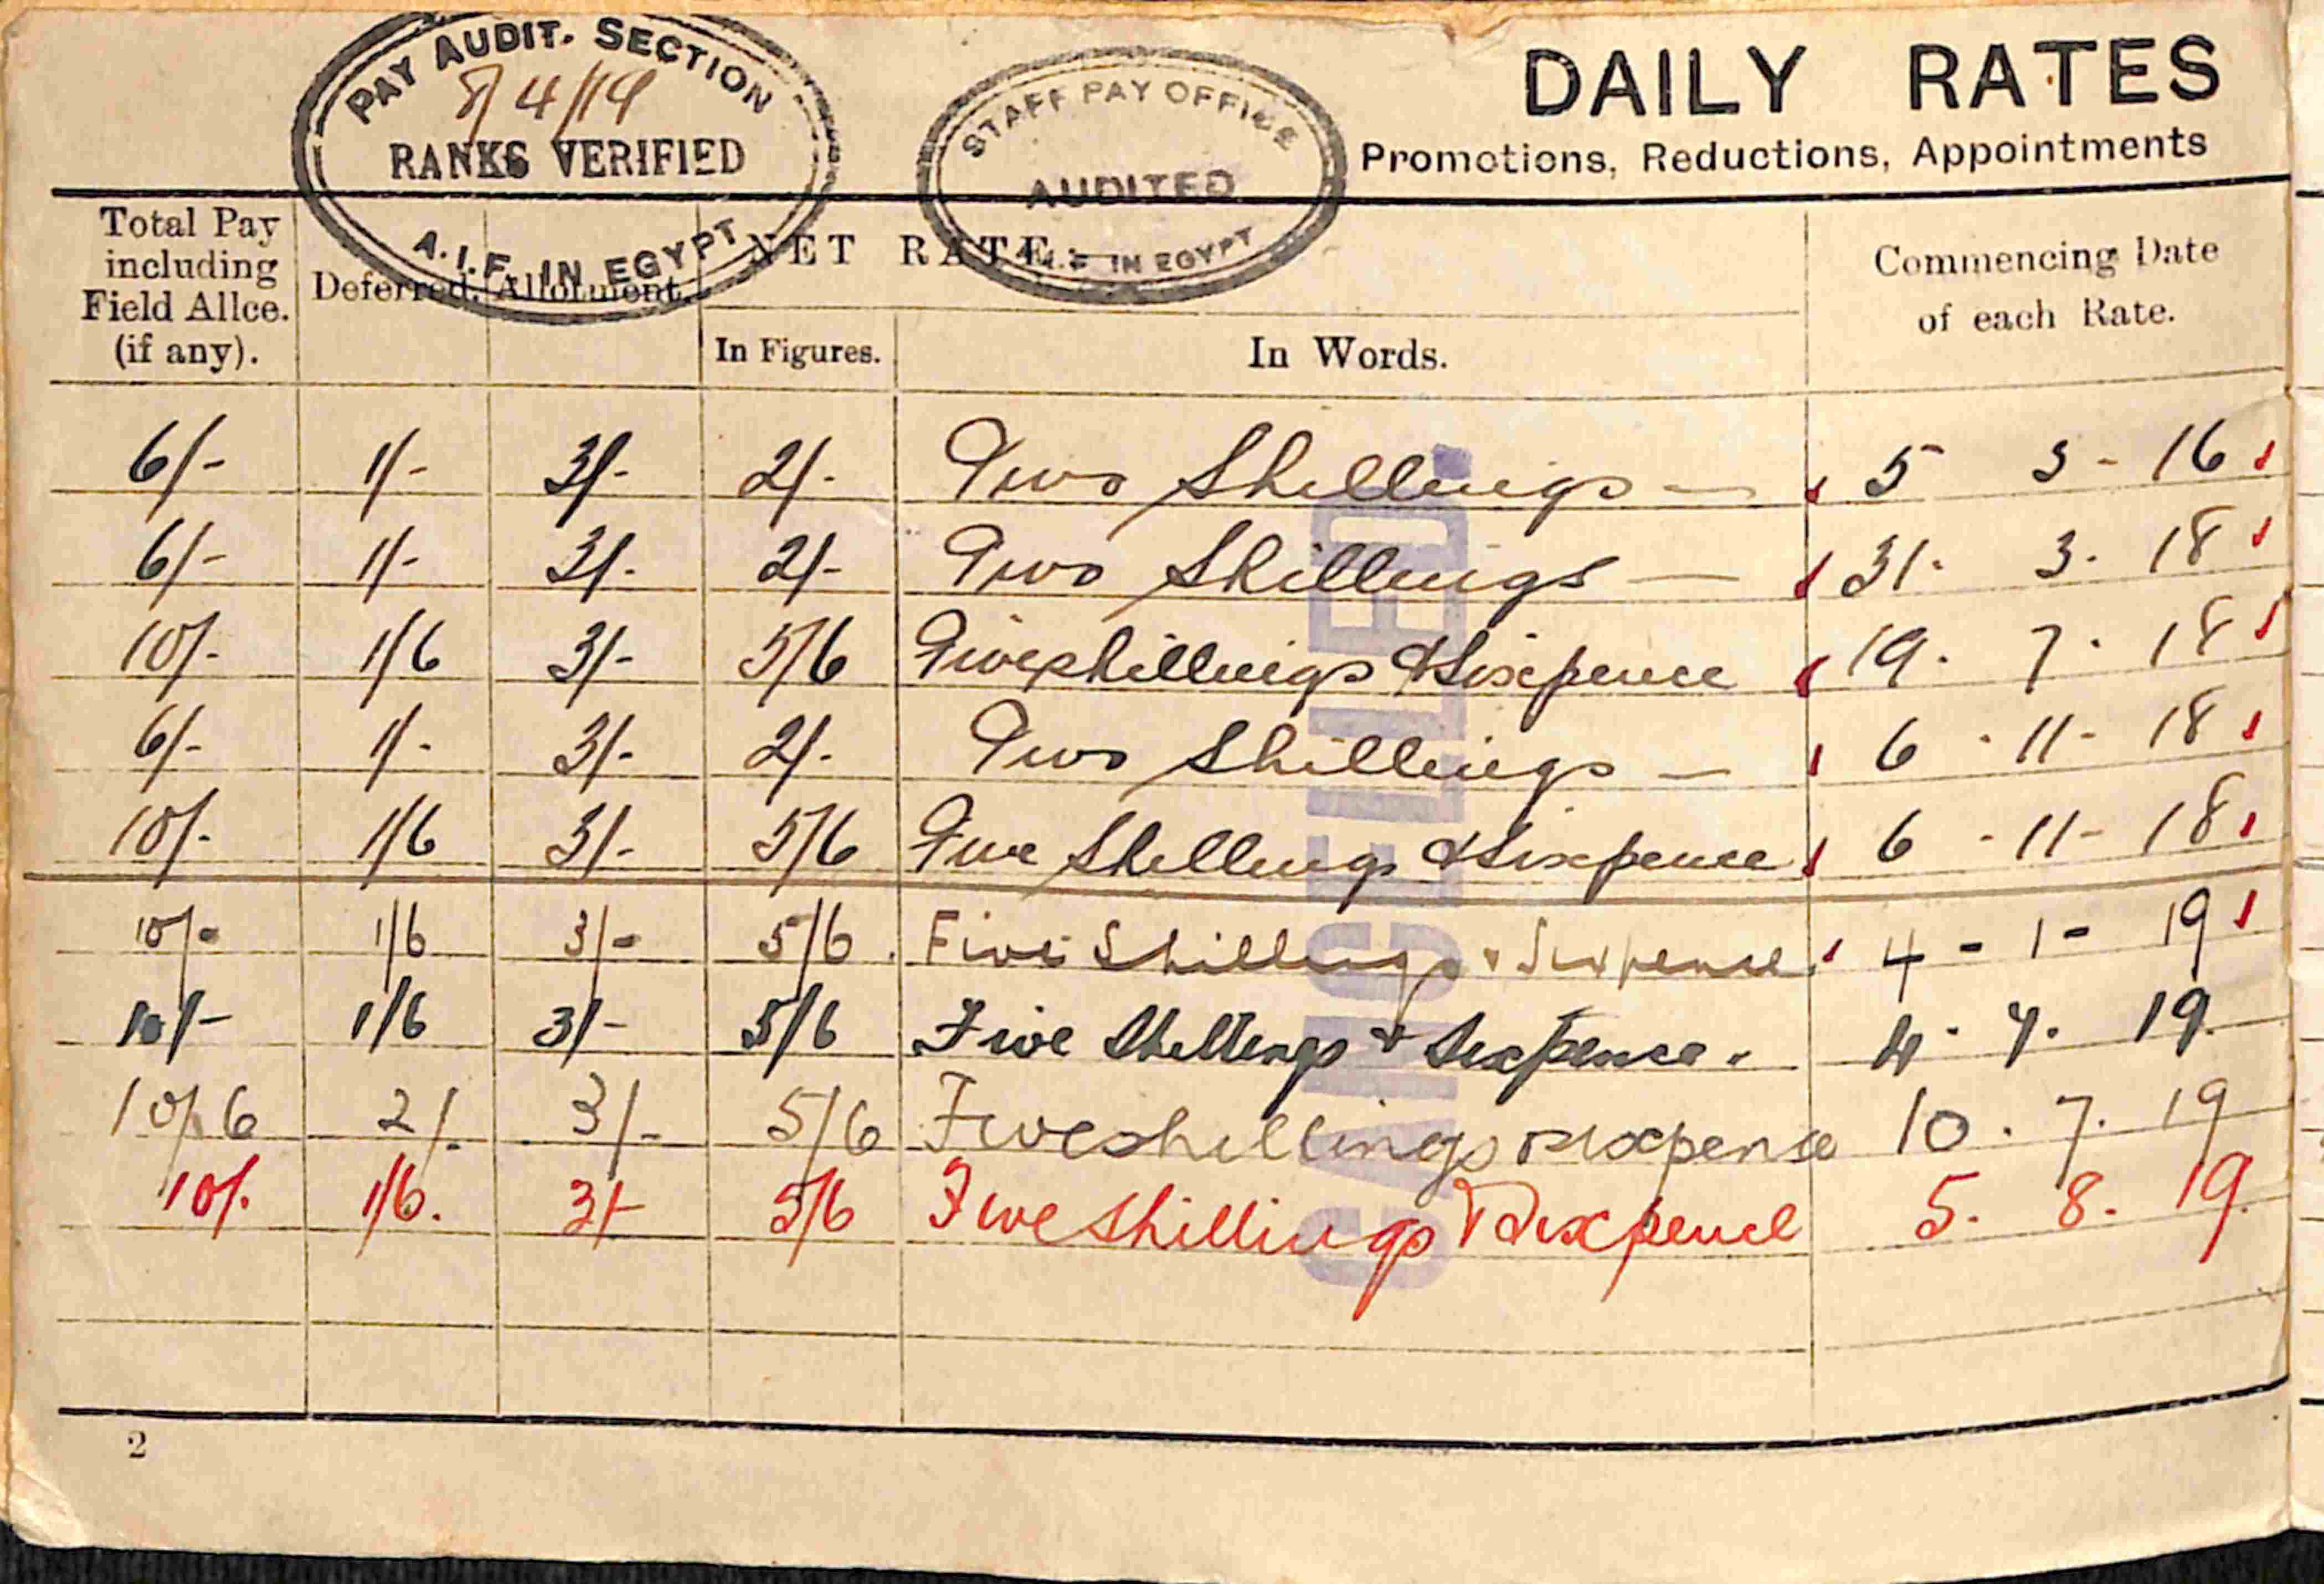 PAY AUDIT. SECTION
8/4/19
RANKS VERIFIED
A.I.F. IN EGYPT
STAFF PAY OFFICE
AUDITED
A.I.F. IN EGYPT
DAILY RATES
Promotions, Reductions, Appointments
Total Pay including Field Allce. (if any). Deferred. Allotment. NET RATE. Commencing Date of each Rate.
In Figures. In Words.
6/- 1/- 3/- 2/- Two Shillings — 5 3 - 16
6/- 1/- 3/- 2/- Two Shillings — 31. 3. 18
10/- 1/6 3/- 5/6 Five shillings & Sixpence 19. 7. 18
6/- 1/- 3/- 2/- Two Shillings — 6 - 11 - 18
10/- 1/6 3/- 5/6 Five Shillings & Sixpence 6 - 11 - 18
10/- 1/6 3/- 5/6 Five Shillings & Sixpence 4 - 1 - 19
10/- 1/6 3/- 5/6 Five Shillings & Sixpence. 4. 19.
10/6 2/- 3/- 5/6 Five shillings sixpense 10. 7. 19
10/- 1/6. 3/- 5/6 Five Shillings & Sixpence 5. 8. 19.
CANCELLED.
2